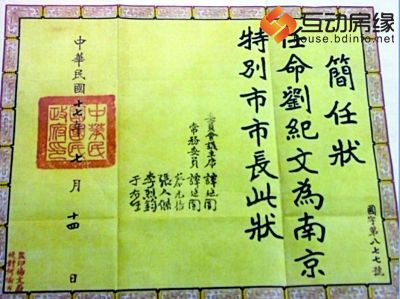 互动房缘
ouse.bdinfo.net
簡任狀
任命劉紀文為南京
特别市市長此狀
委員會議主席 譚延闓
常務委員 譚延闓
蔡元培
張人傑
李烈鈞
于右任
中華民國十七年七月十四日
中華民
國國民
政府印
國字第八七七號
監印楊文
校對何